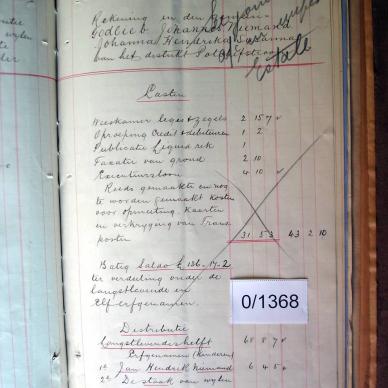 Rekening in den
Gedlieb Johannes Niemand
Johanna Hendrika Susanna
van het distrikt
Estate
Lasten
Weeskamer leges & zegels 2 15 7
Oproeping Credit & debiteuren 1 2
Publicatie Liquid rek 1
Taxatie van grond 2 10
Executeursloon 4 10
Reeds gemaakte en nog
te worden gemaakt kosten
voor opmeting, Kaarten
en verkryging van Trans
kosten 31 5 3 43 2 10
Batig Saldo £ 136.17.2
ter verdeling onder de
langstlevende en
Elf erfgenamen.
0/1368
Distributie
Langstlevendeshelft 68 8 7
Erfgenamen (Kinderen)
1e Jan Hendrik Niemand 6 4 5
2e De staak van wylen